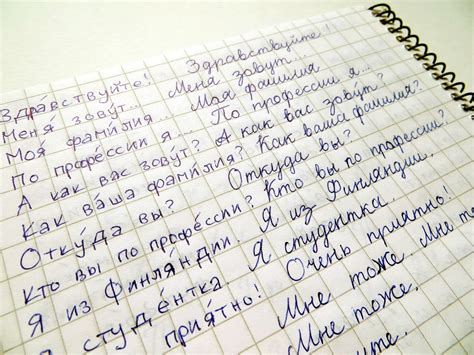 Здравствуйте! Здравствуйте!
Меня́ зову́т... Меня зовут...
Моя́ фами́лия... Моя фамилия...
По профе́ссии я... По профессии я...
А как вас зову́т? А как вас зовут?
Как ва́ша фами́лия? Как ваша фамилия?
Отку́да вы? Откуда вы?
Кто вы по профе́ссии? Кто вы по профессии?
Я из Финля́ндии. Я из Финляндии.
студе́нтка. Я студентка.
прия́тно! Очень приятно!
Мне тоже. Мне
Мне тоже.